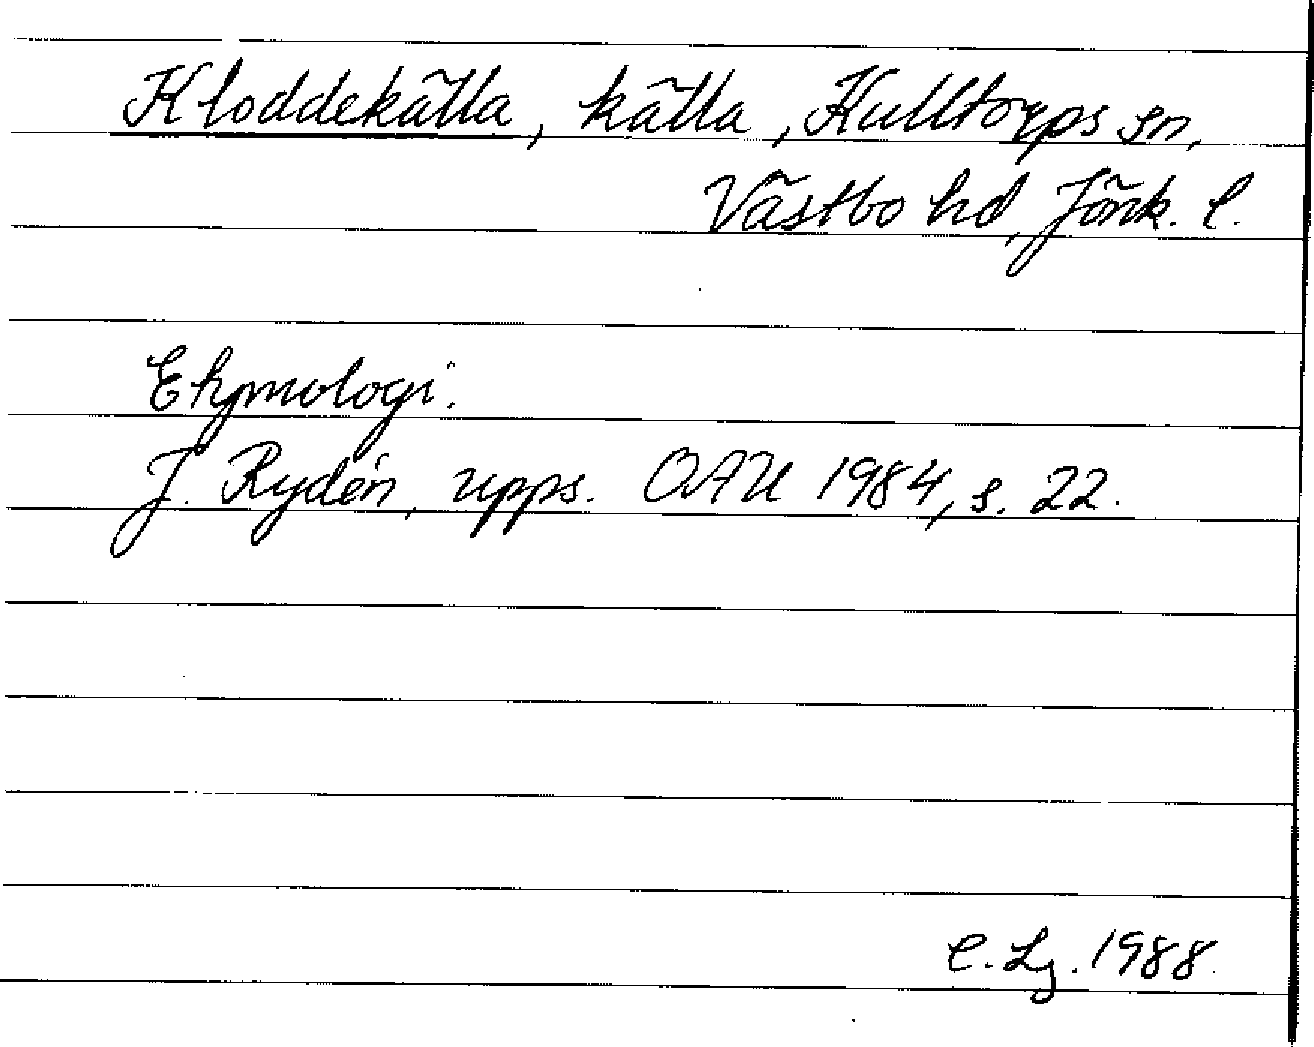 Kloddekälla, källa, Kulltorps sn,
Västbo hd, Jönk. l.
Etymologi:
J. Rydén, upps. OAU 1984, s. 22.
C. Lj. 1988